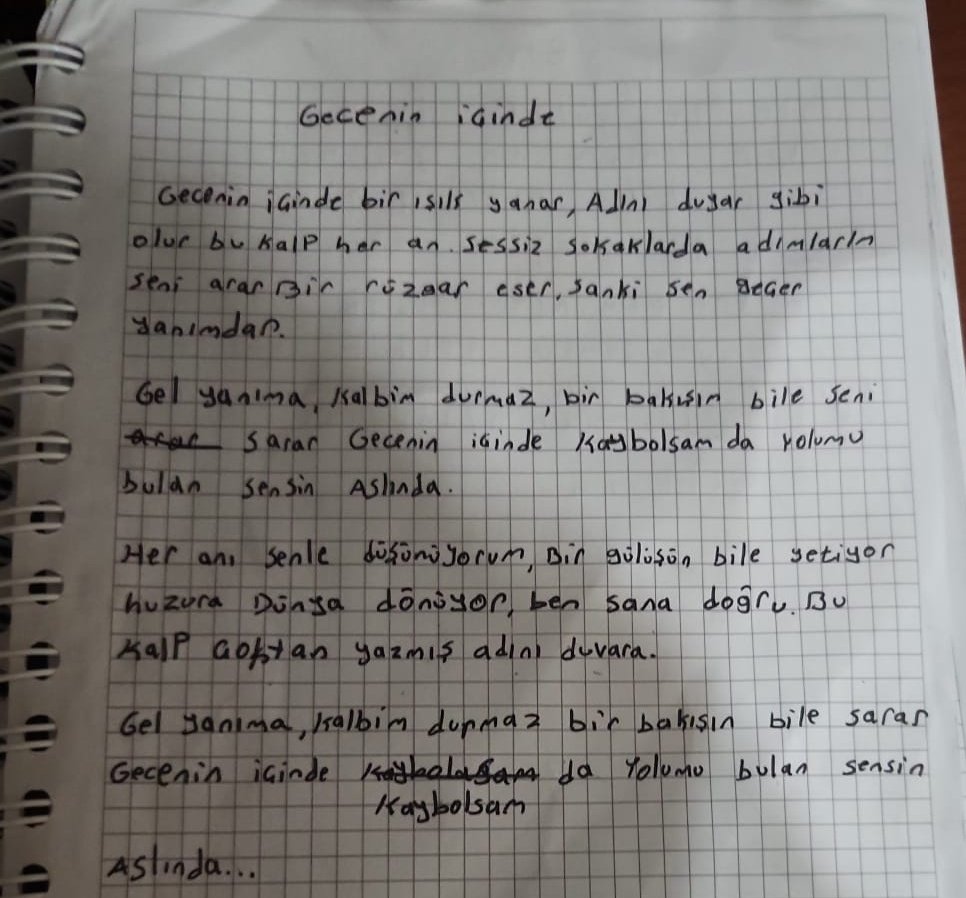 Gecenin içinde
Gecenin içinde bir ışıls yanar, Adını duyar gibi
olur bu kalp her an. sessiz sokaklarda adımların
seni arar Bir rüzgar eser, sanki sen geçer
yanımdan.
Gel yanıma, kalbim durmaz, bir bakışın bile seni
sarar Gecenin içinde kaybolsam da yolumu
bulan sensin Aslında.
Her anı senle düşünüyorum, Bir gülüşün bile yetiyor
huzura Dünya dönüyor, ben sana doğru. Bu
kalp çoktan yazmış adını duvara.
Gel yanıma, kalbim durmaz bir bakışın bile sarar
Gecenin içinde da Yolumu bulan sensin
Kaybolsam
Aslında...